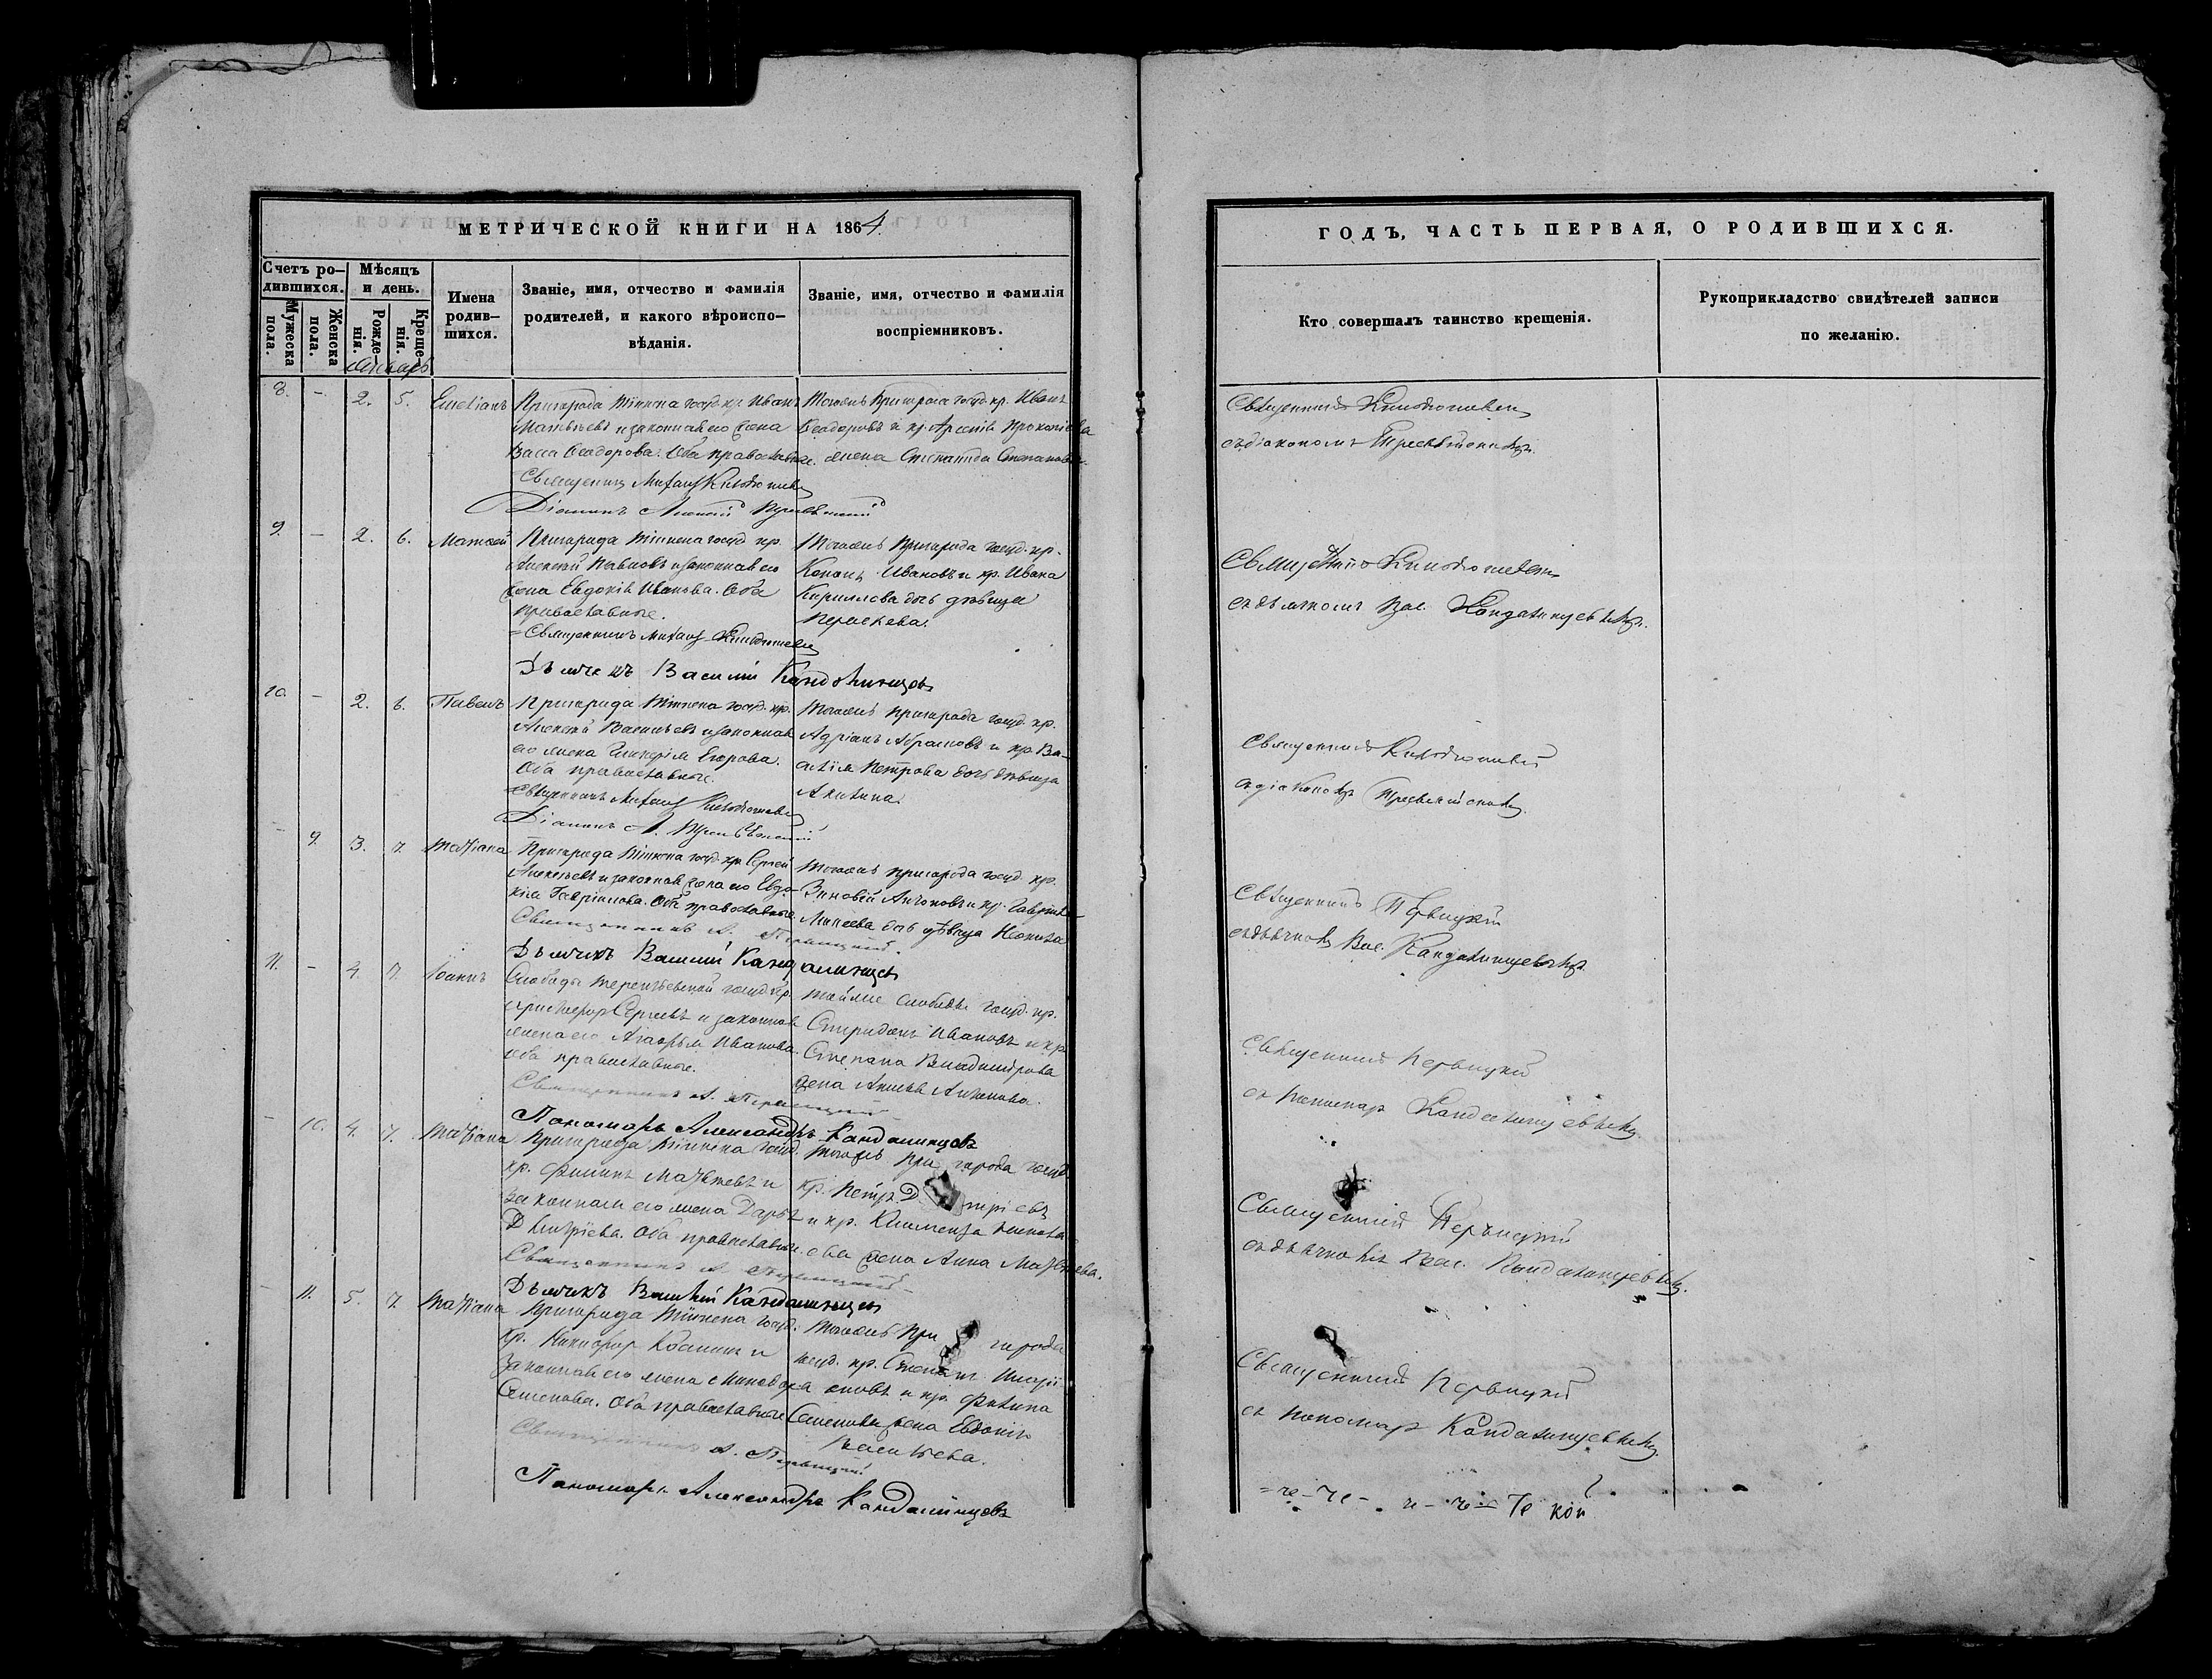 МЕТРИЧЕСКОЙ КНИГИ НА 1864
Счетъ ро-
дившихся.
Мужеска
пола.
Женска
пола.
Мѣсяцъ
и день.
Рожде-
нія.
Креще-
нія.
Имена
родив-
шихся.
Званіе, имя, отчество и фамилія
родителей, и какого вѣроиспо-
вѣданія.
Званіе, имя, отчество и фамилія
воспріемниковъ.
Январь
8. - 2. 5. Емеліанъ
Пригорода Тіинска госуд. кр. Иванъ
Матвѣевъ и законная его жена
Васса Ѳеодорова. Оба православные.
Священникъ Михаилъ
Діаконъ Алексій
Тогоже Пригорода госуд. кр. Иванъ
Ѳеодоровъ и кр. Арсенія Прокопіева
жена Степанида Степанова.
9. - 2. 6. Матѳей
Пригорода Тіинска госуд. кр.
Алексѣй Павловъ и законная его
жена Евдокія Иванова. Оба
православные.
Священникъ Михаилъ
Дьячекъ Василій Кандалинцевъ
Тогоже Пригорода госуд. кр.
Кононъ Ивановъ и кр. Ивана
Кириллова дочь дѣвица
Пораскева.
10. - 2. 6. Павелъ
Пригорода Тіинска госуд. кр.
Алексѣй Васильевъ и законная
его жена Гликерія Егорова.
Оба православные.
Священникъ Михаилъ
Діаконъ А.
Тогоже пригорода госуд. кр.
Адріанъ Абрамовъ и кр. Ва-
силія Петрова дочь дѣвица
Акилина.
- 9. 3. 7. Татіана
Пригорода Тіинска госуд. кр. Сергей
Алексѣевъ и законная жена его Евдо-
кія Гавріилова. Оба православные.
Священникъ А. Первицкій
Дьячекъ Василій Кандалинцевъ
Тогоже пригорода госуд. кр.
Зиновій Антоновъ и кр. Гавріила
Михеева дочь дѣвица Неонила
11. - 4. 7. Іоаннъ
Слободы Терентьевской госуд. кр.
Христофоръ Сергеевъ и законная
жена его Агафья Иванова.
Оба православные.
Священникъ А. Первицкій
Пономарь Александръ Кандалинцевъ
Тойже слободы госуд. кр.
Спиридонъ Ивановъ и кр.
Степана Владимірова
жена Антонова.
- 10. 4. 7. Татіана
Пригорода Тіинска госуд.
кр. Филипъ Матвѣевъ и
законная его жена Дарья
Дмитріева. Оба православные.
Священникъ А. Первицкій
Дьячекъ Василій Кандалинцевъ
Тогоже Пригорода госуд.
кр. Петръ Д тріевъ
и кр. Климента
ева жена Анна Матвѣева.
- 11. 5. 7. Татіана
Пригорода Тіинска госуд.
кр. Никифоръ и
законная его жена
Семенова. Оба православные
Священникъ А. Первицкій
Пономарь Александръ Кандалинцевъ
Тогоже При города
госуд. кр. Степанъ Илларі-
оновъ и кр. Филипа
Семенова жена Евдокія
Васильева.
ГОДЪ, ЧАСТЬ ПЕРВАЯ, О РОДИВШИХСЯ.
Кто совершалъ таинство крещенія.
Рукоприкладство свидѣтелей записи
по желанію.
Священникъ
съ діакономъ
Священникъ
съ дьячкомъ Вас. Кандалинцевымъ.
Священникъ
съ діакономъ
Священникъ Первицкій
съ дьячкомъ Вас. Кандалинцевымъ.
Священникъ Первицкій
съ пономар. Кандалинцевымъ.
Священникъ Первицкій
съ дьячкомъ Вас. Кандалинцевымъ.
Священникъ Первицкій
съ пономар. Кандалинцевымъ.